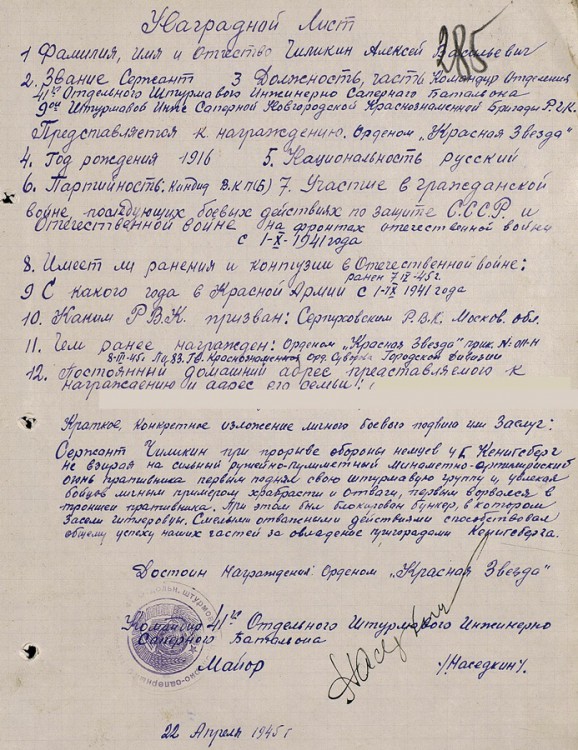 Наградной Лист
285
1 Фамилия, имя и Отчество Чиликин Алексей Васильевич
2. Звание Сержант 3 Должность, часть Командир Отделения
41го Отдельного Штурмавого Инженерно Саперного Баталона
9ой Штурмавой Инж. Саперной Новгородской Краснознаменной Бригады Р.Г.К.
Представляется к награждению. Орденом „Красная Звезда"
4. Год рождения 1916 5. Национальность русский
6. Партийность. Кандид В.К.П(Б) 7. Участие в гражданской
войне, последующих боевых действиях по защите С.С.С.Р. и
Отечественной войне на фронтах отечественной война
с 1-IX-1941 года
8. Имеет ли ранения и контузии в Отечественной войне:
ранен 7-IV-45г.
9 С какого года в Красной Армии с 1-IX 1941 года
10. Каким Р.В.К. призван: Серпуховским Р.В.К. Москов. обл.
11. Чем ранее награжден: Орденом „Красная Звезда" прик. N-011-Н
8-III-45г. По 83. Гв. Краснознаменной орд. Суворова Городской дивизии
12. Постоянный домашний адрес представляемого к
награждению и адрес его семьи:
Краткое, конкретное изложение личного боевого подвига или Заслуг:
Сержант Чиликин при прорыве обороны немцев у г. Кенигсберг
не взирая на сильный ружейно-пулиметный минометно-артилирийский
огонь пративника первым поднял свою штурмавую группу и, увлекая
бойцов личным примером храбрасти и Отваги, первым ворвался в
траншеи пративника. При этом был блокирован бункер, в котором
Засели гитлеровцы. Смелыми отважными действиями способствовал
общему успеху наших частей за овладение пригородами Кенигсберга.
Достоин Награждения Орденом „Красная Звезда"
Командир 41го Отдельного Штурмового Инженерно
Саперного Баталона
Майор /Наседкин/.
22 Апреля 1945г